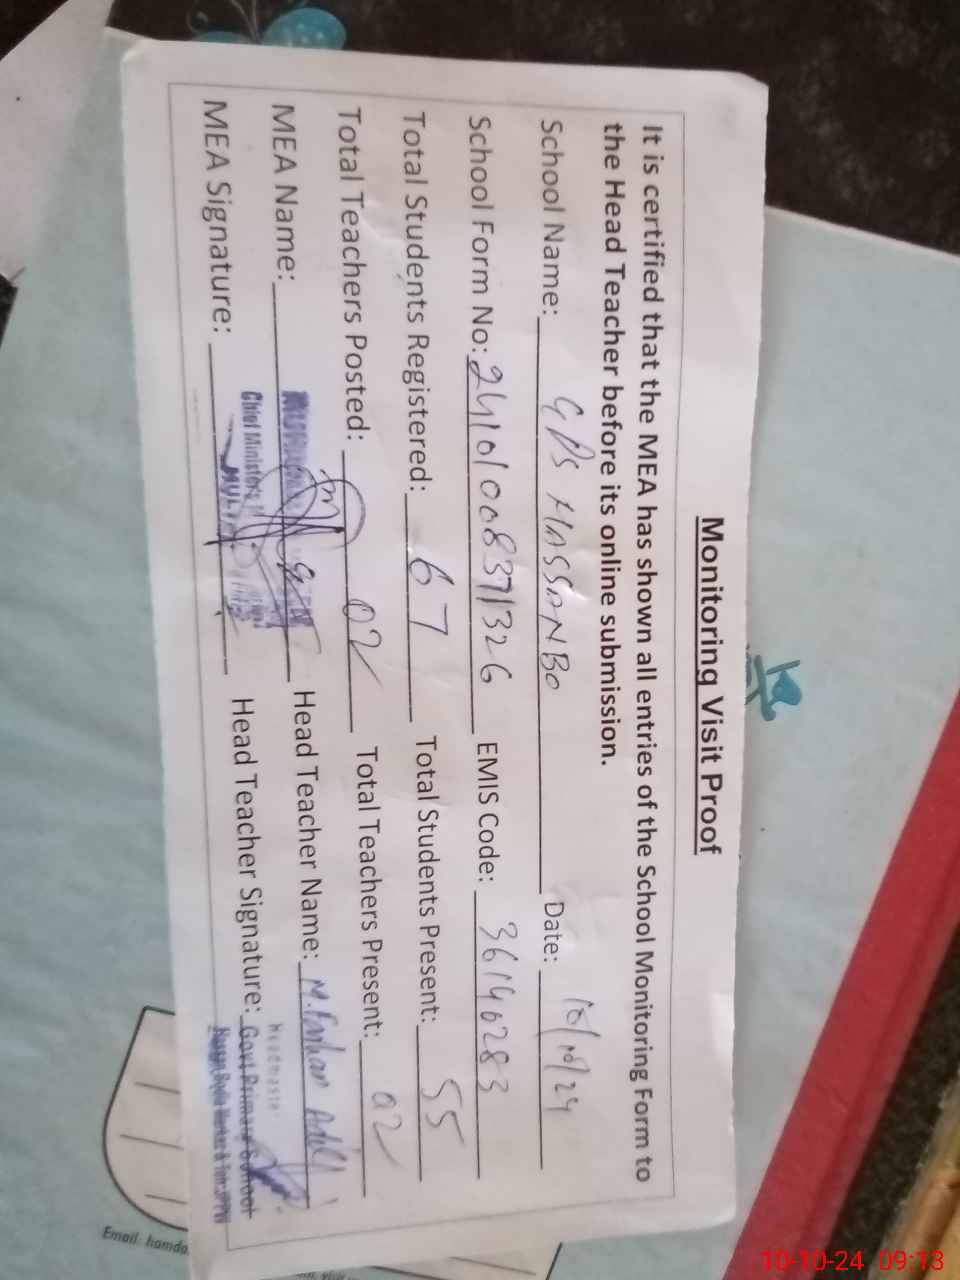 Monitoring Visit Proof
It is certified that the MEA has shown all entries of the School Monitoring Form to
the Head Teacher before its online submission.
School Name: GPS HASSAN BO Date: 10/10/24
School Form No: 24101008371326 EMIS Code: 36146283
Total Students Registered: 67 Total Students Present: 55
Total Teachers Posted: 02 Total Teachers Present: 02
MEA Name: Head Teacher Name: M. Farhan Adil
Headmaster
MEA Signature: Head Teacher Signature: Govt Primary School
Chief Minister's
Email: hamda
10-10-24 09:13